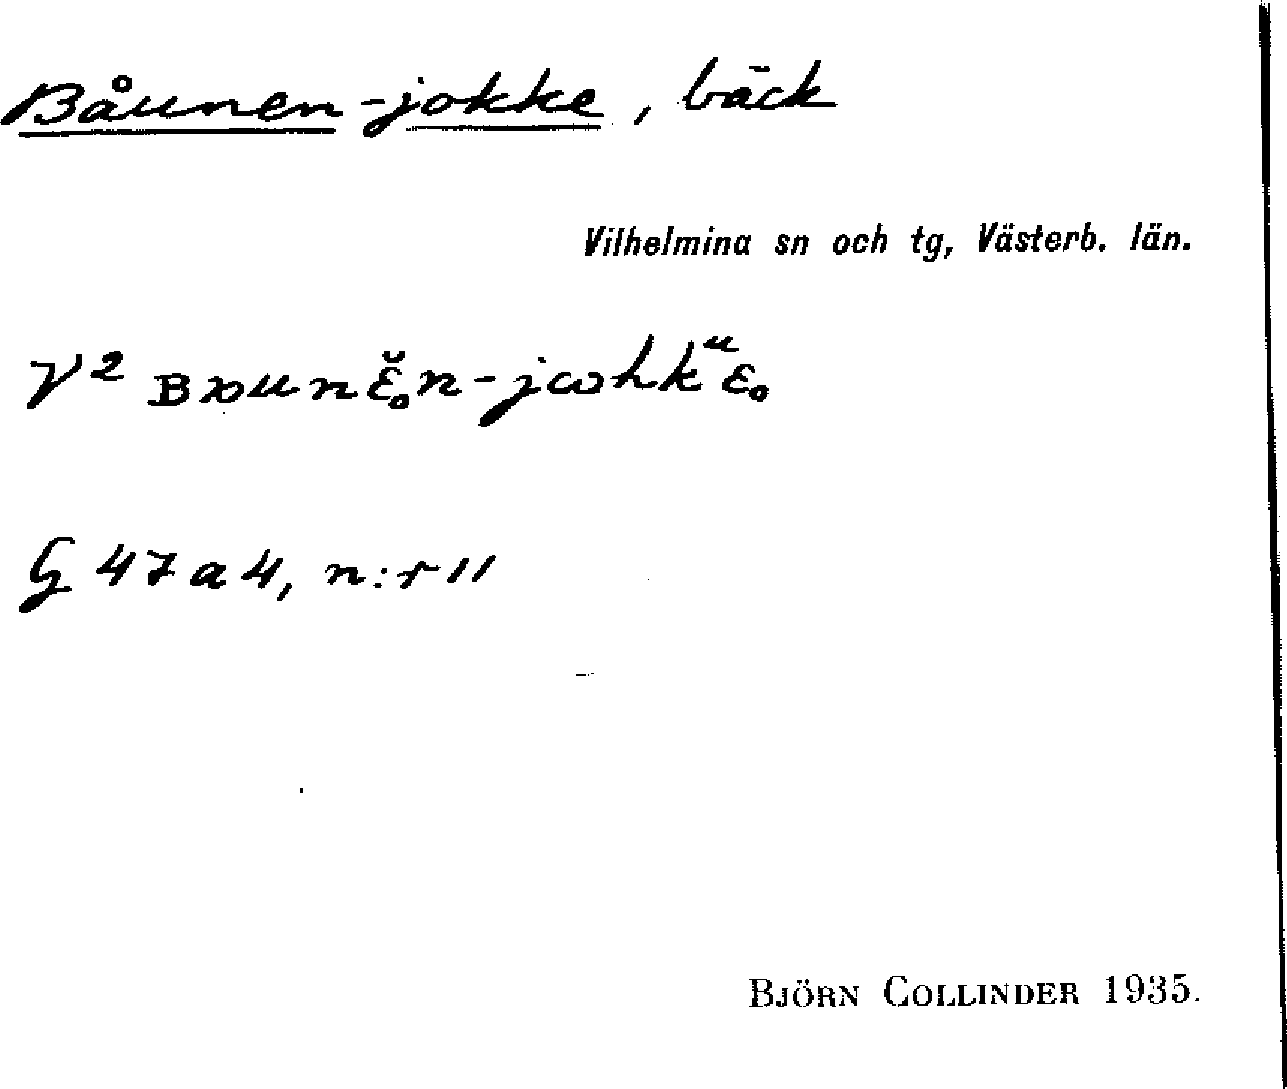 Båunen-jokke, bäck
Vilhelmina sn och tg, Västerb. län.
V²
G 47a4, n:r 11
BJÖRN COLLINDER 1935.